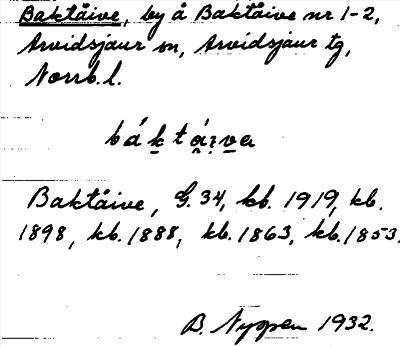 Baktåive, by å Baktåive nr 1-2,
Arvidsjaur sn, Arvidsjaur tg,
Norrb. l.
báktá̱i̯va
Baktåive, G. 34, kb. 1919, kb.
1898, kb. 1888, kb. 1863, kb. 1853.
B. Nyopen 1932.